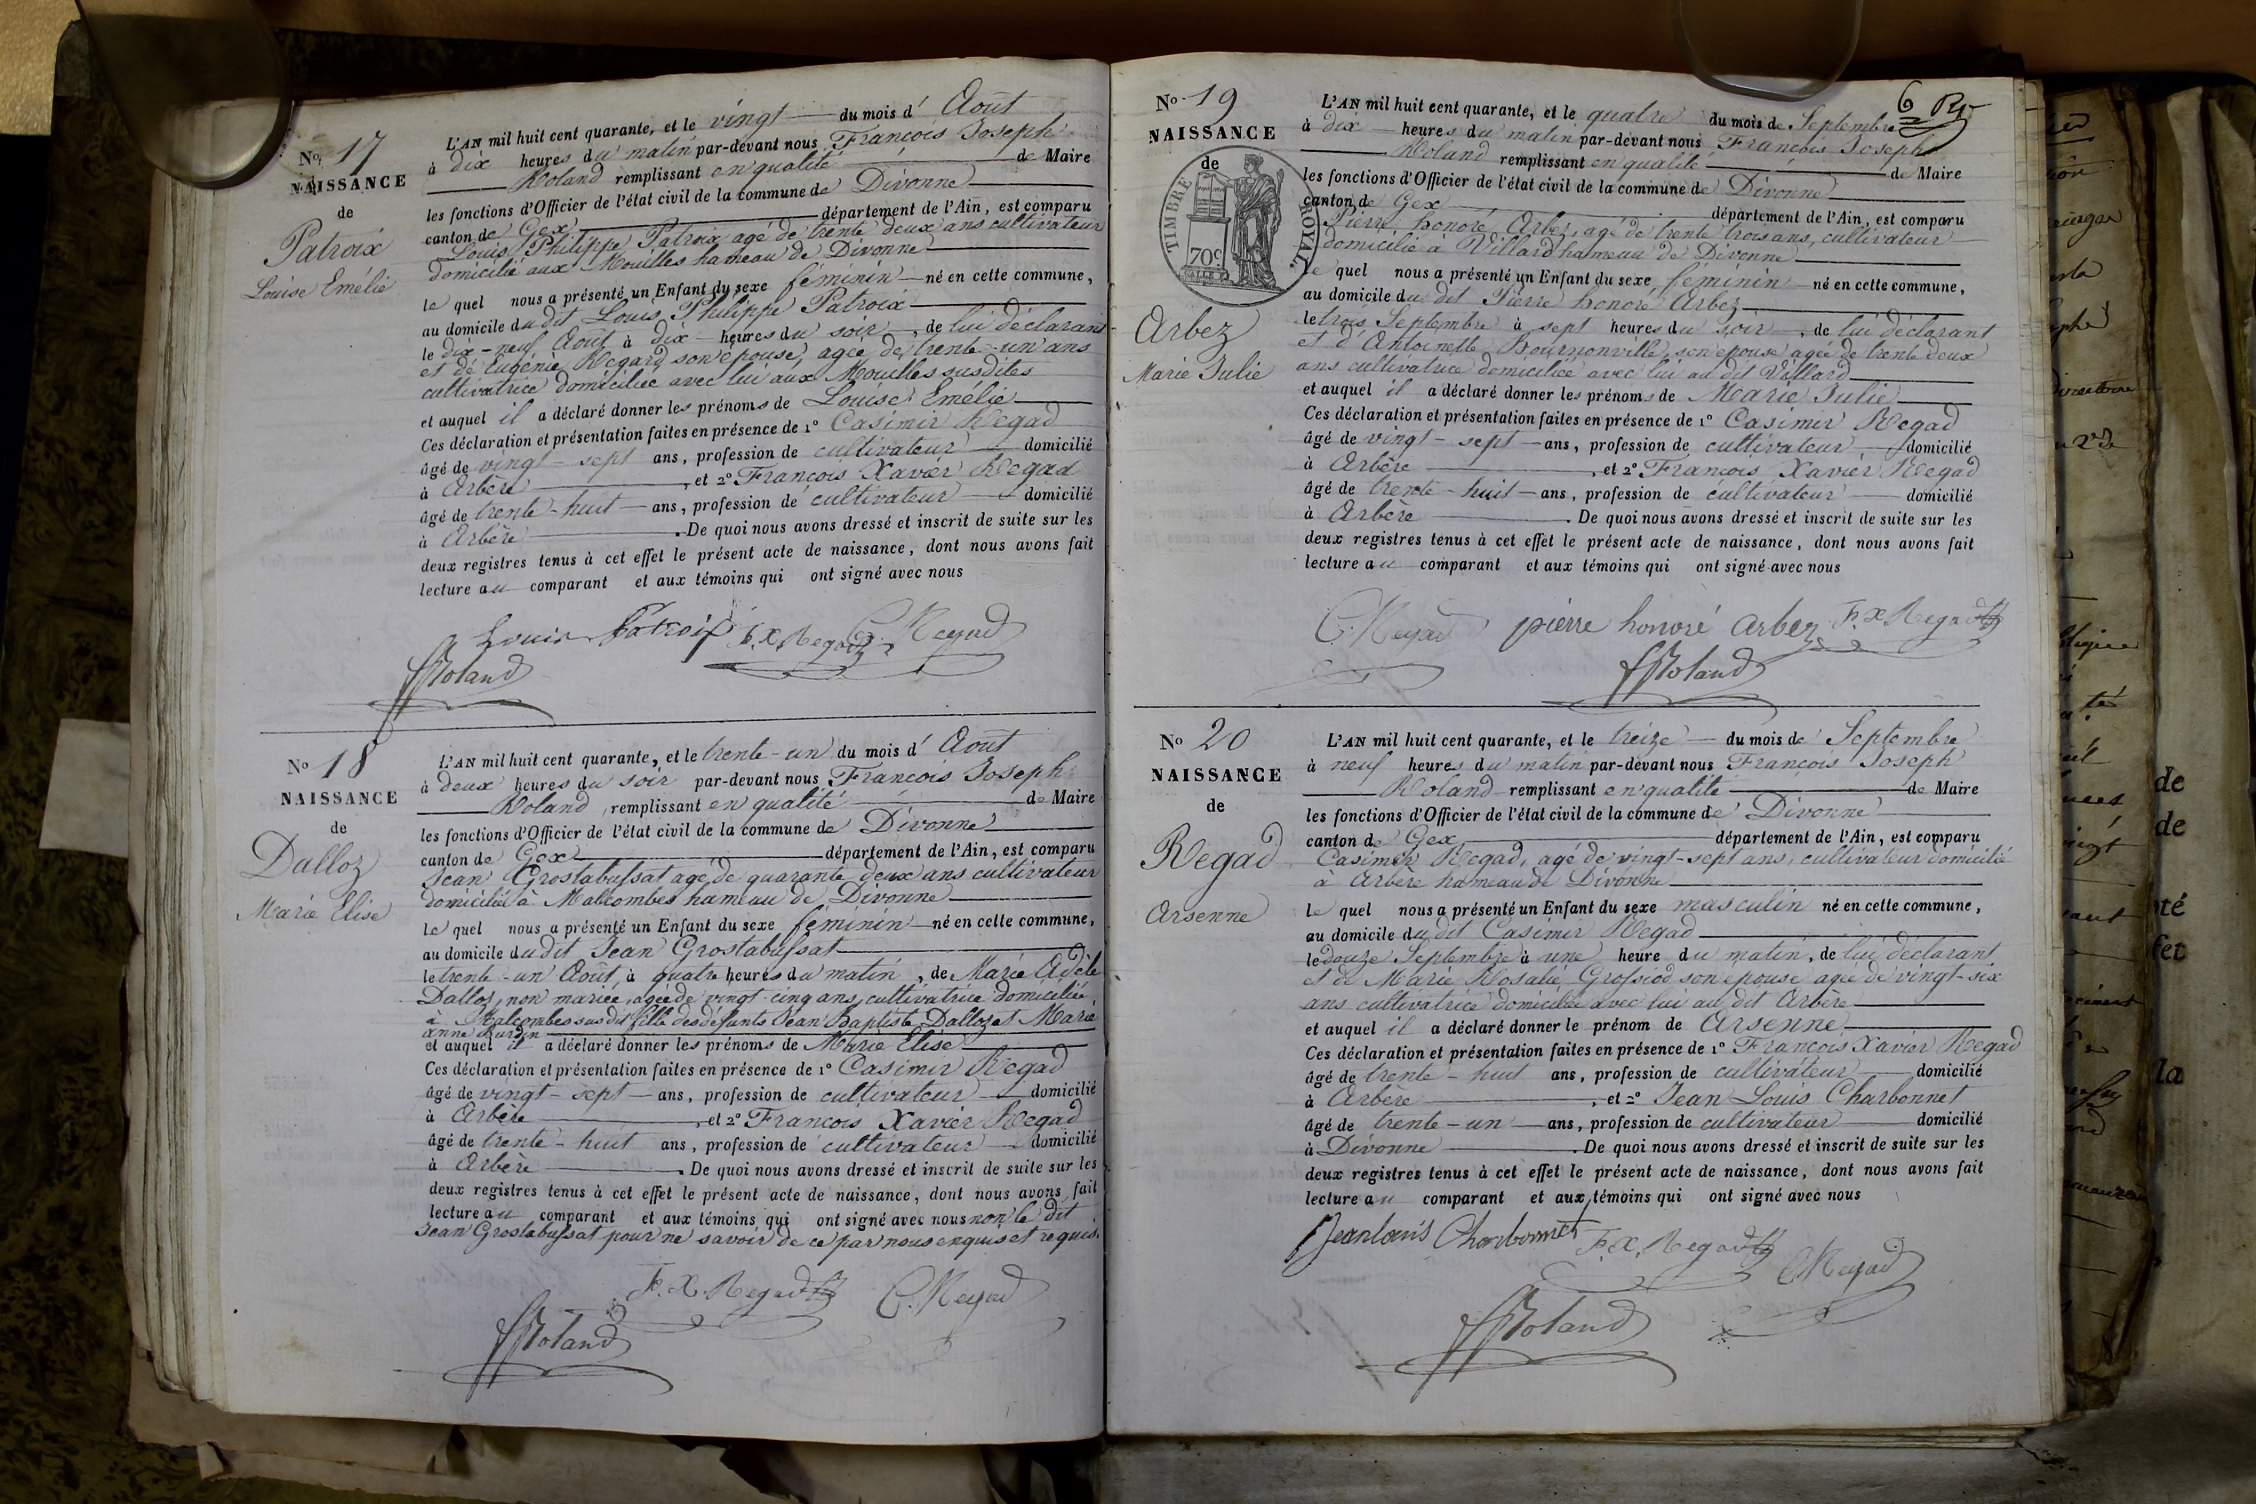 No. 17
NAISSANCE
de
Patroix
Louise Emélie
L'AN mil huit cent quarante, et le vingt du mois d' Août
à dix heures du matin par-devant nous François Joseph
Roland remplissant en qualité de Maire
les fonctions d'Officier de l'état civil de la commune de Divonne
canton de Gex département de l'Ain, est comparu
Louis Philippe Patroix agé de trente deux ans cultivateur
domicilié aux Mouilles hameau de Divonne
le quel nous a présenté un Enfant du sexe féminin né en cette commune,
au domicile du dit Louis Philippe Patroix
le dix-neuf Août à dix heures du soir, de lui déclarant
et de Eugénie Regard son épouse, agée de trente-un ans
cultivatrice domiciliée avec lui aux Mouilles susdites
et auquel il a déclaré donner les prénoms de Louise Emélie
Ces déclaration et présentation faites en présence de 1º Casimir Regad
âgé de vingt-sept ans, profession de cultivateur domicilié
à Arbère, et 2º François Xavier Regad
âgé de trente-huit ans, profession de cultivateur domicilié
à Arbère. De quoi nous avons dressé et inscrit de suite sur les
deux registres tenus à cet effet le présent acte de naissance, dont nous avons fait
lecture au comparant et aux témoins qui ont signé avec nous
Louis Patroix F. X. Regad C. Regad
FRoland
No 18
NAISSANCE
de
Dalloz
Marie Elise
L'AN mil huit cent quarante, et le trente-un du mois d' Août
à deux heures du soir par-devant nous François Joseph
Roland, remplissant en qualité de Maire
les fonctions d'Officier de l'état civil de la commune de Divonne
canton de Gex département de l'Ain, est comparu
Jean Grostabussat agé de quarante deux ans cultivateur
domicilié à Malcombes hameau de Divonne
le quel nous a présenté un Enfant du sexe féminin né en cette commune,
au domicile du dit Jean Grostabussat
le trente-un Août, à quatre heures du matin, de Marie Adèle
Dalloz, non mariée, agée de vingt-cinq ans, cultivatrice domiciliée
à Malcombes susdit fille des défunts Jean Baptiste Dalloz et Marie
Anne
et auquel il a déclaré donner les prénoms de Marie Elise
Ces déclaration et présentation faites en présence de 1º Casimir Regad
âgé de vingt-sept ans, profession de cultivateur domicilié
à Arbère, et 2º François Xavier Regad
âgé de trente-huit ans, profession de cultivateur domicilié
à Arbère. De quoi nous avons dressé et inscrit de suite sur les
deux registres tenus à cet effet le présent acte de naissance, dont nous avons fait
lecture au comparant et aux témoins qui ont signé avec nous non le dit
Jean Grostabussat pour ne savoir de ce par nous enquis et requis.
F. X. Regad C. Regad
FRoland
6
No 19
NAISSANCE
de
TIMBRE ROYAL.
70c
Arbez
Marie Julie
L'AN mil huit cent quarante, et le quatre du mois de Septembre
à dix heures du matin par-devant nous François Joseph
Roland remplissant en qualité de Maire
les fonctions d'Officier de l'état civil de la commune de Divonne
canton de Gex département de l'Ain, est comparu
Pierre honoré Arbez, agé de trente trois ans, cultivateur
domicilié à Villard hameau de Divonne
le quel nous a présenté un Enfant du sexe féminin né en cette commune,
au domicile du dit Pierre honoré Arbez
le trois Septembre à sept heures du soir, de lui déclarant
et d'Antoinette Bournonville, son épouse agée de trente deux
ans cultivatrice domiciliée avec lui au dit Villard
et auquel il a déclaré donner les prénoms de Marie Julie
Ces déclaration et présentation faites en présence de 1º Casimir Regad
âgé de vingt-sept ans, profession de cultivateur domicilié
à Arbère, et 2º François Xavier Regad
âgé de trente-huit ans, profession de cultivateur domicilié
à Arbère. De quoi nous avons dressé et inscrit de suite sur les
deux registres tenus à cet effet le présent acte de naissance, dont nous avons fait
lecture au comparant et aux témoins qui ont signé avec nous
C. Regad pierre honoré arbez F. X Regad
FRoland
No 20
NAISSANCE
de
Regad
Arsenne
L'AN mil huit cent quarante, et le treize du mois de Septembre
à neuf heures du matin par-devant nous François Joseph
Roland remplissant en qualité de Maire
les fonctions d'Officier de l'état civil de la commune de Divonne
canton de Gex département de l'Ain, est comparu
Casimir Regad, agé de vingt-sept ans, cultivateur domicilié
à Arbère hameau de Divonne
le quel nous a présenté un Enfant du sexe masculin né en cette commune,
au domicile du dit Casimir Regad
le douze Septembre à une heure du matin, de lui déclarant
et de Marie Rosalie Grossiod son épouse agée de vingt-six
ans cultivatrice domiciliée avec lui au dit Arbère
et auquel il a déclaré donner le prénom de Arsenne
Ces déclaration et présentation faites en présence de 1º François Xavier Regad
âgé de trente-huit ans, profession de cultivateur domicilié
à Arbère, et 2º Jean Louis Charbonnet
âgé de trente-un ans, profession de cultivateur domicilié
à Divonne. De quoi nous avons dressé et inscrit de suite sur les
deux registres tenus à cet effet le présent acte de naissance, dont nous avons fait
lecture au comparant et aux témoins qui ont signé avec nous
Jean louis Charbonnet F. X. Regad C Regad
FRoland
de
de
té
fet
la